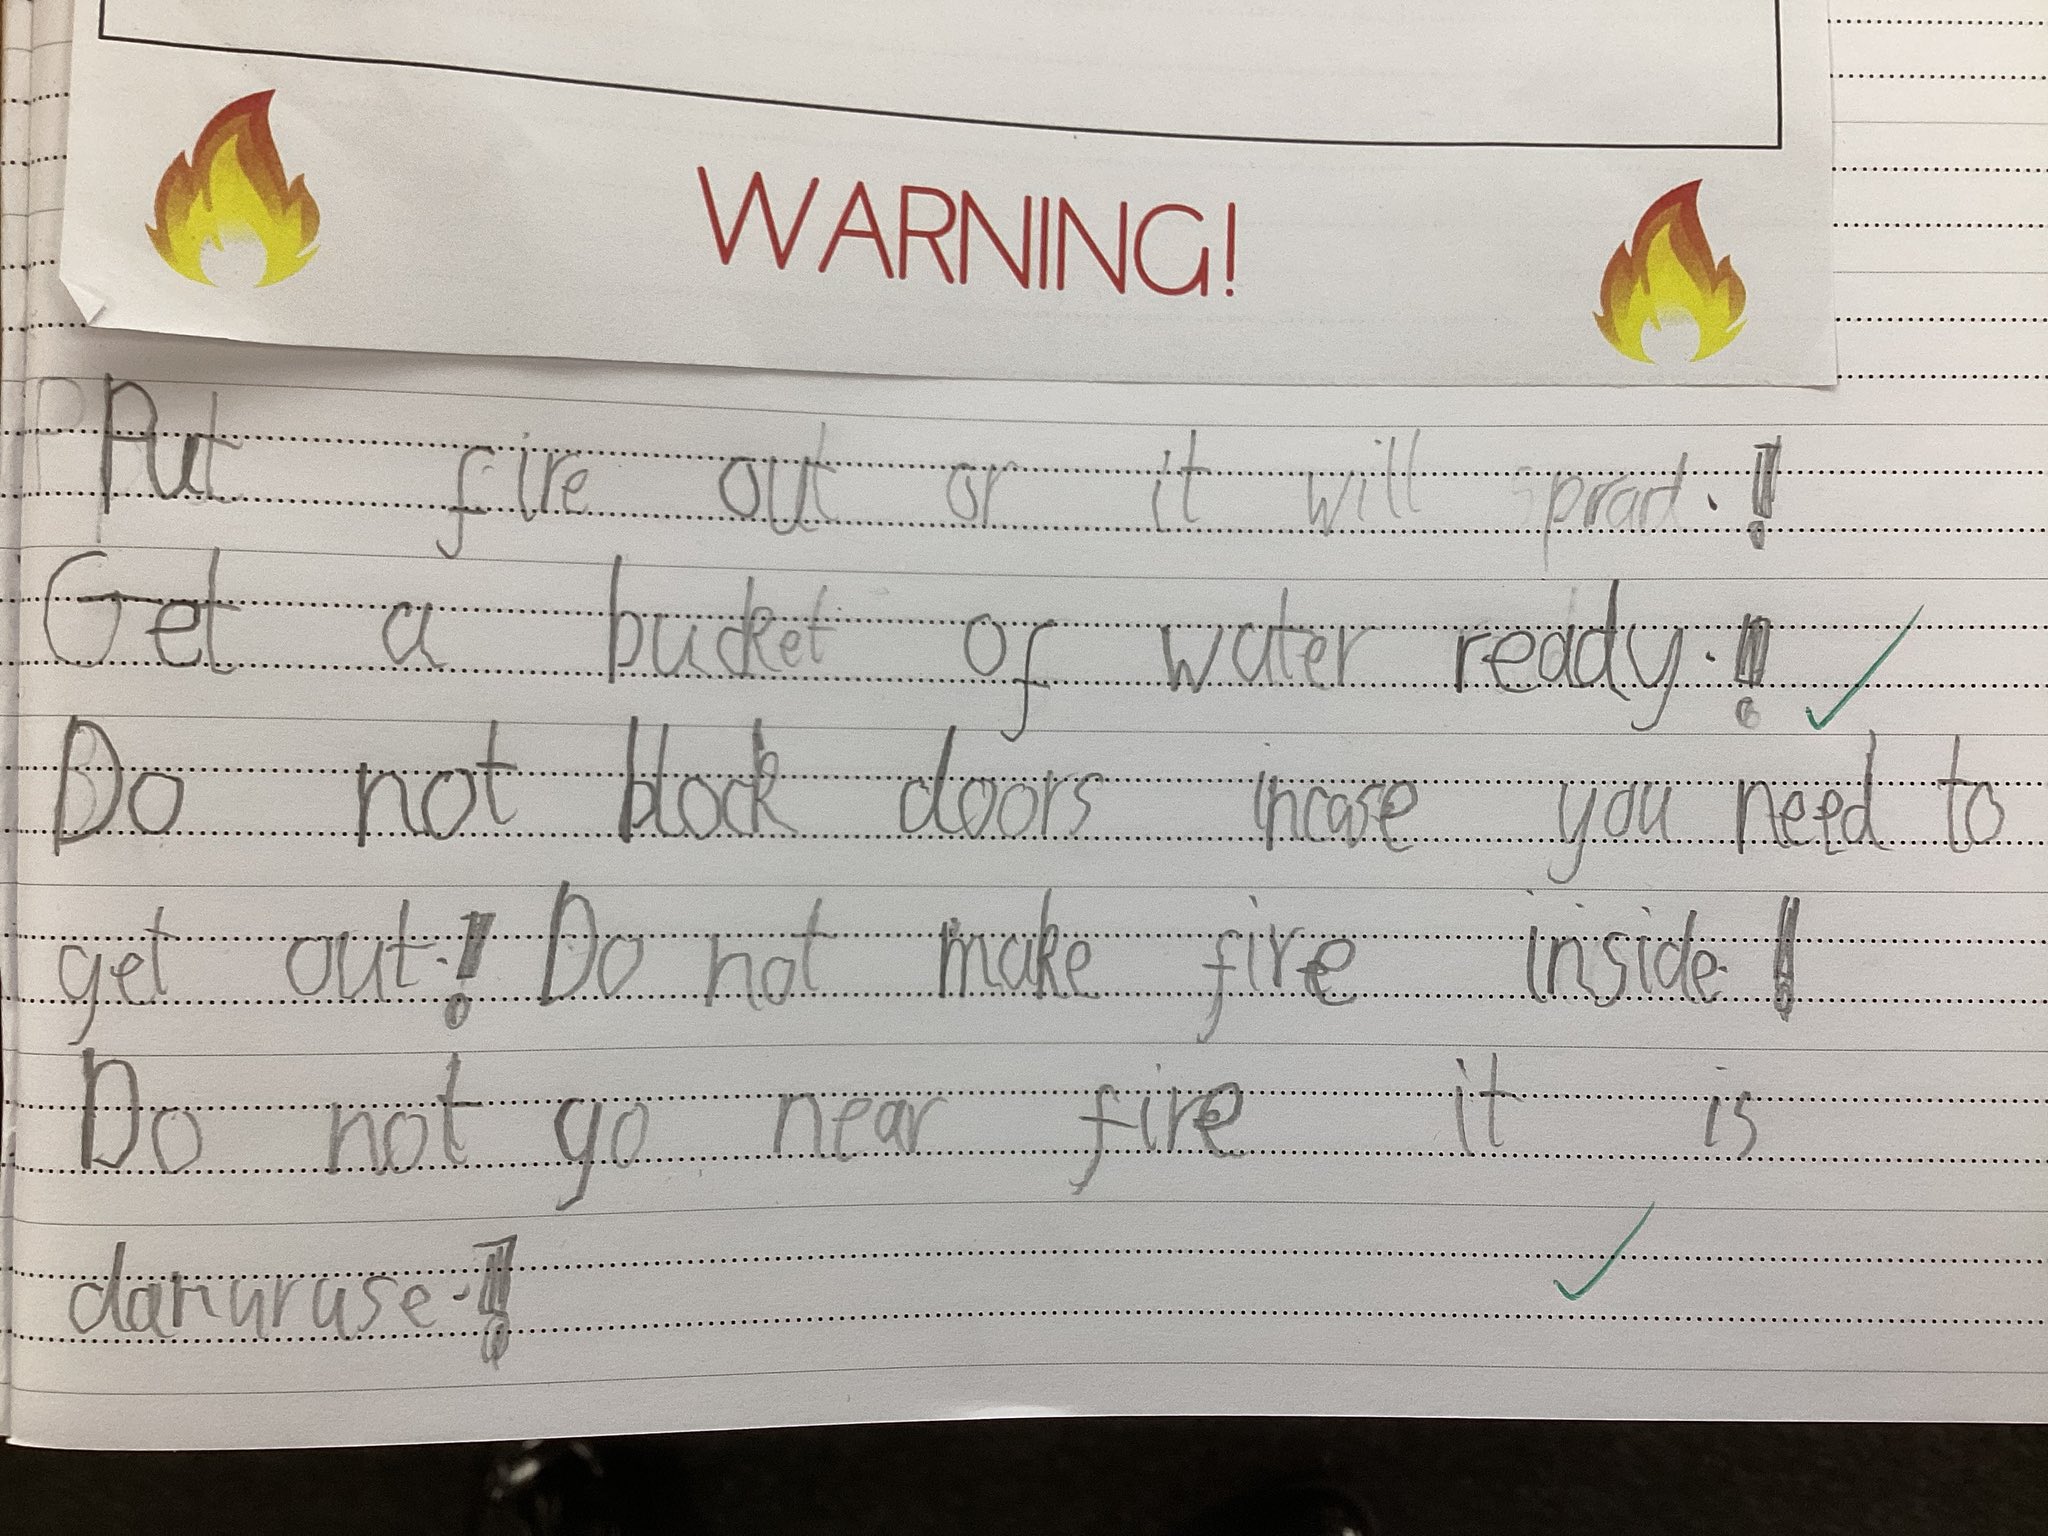 WARNING!
Put fire out or it will sprard.!
Get a bucket of water ready.!
Do not block doors incase you need to
get out.! Do not make fire inside.!
Do not go near fire it is
danuruse.!